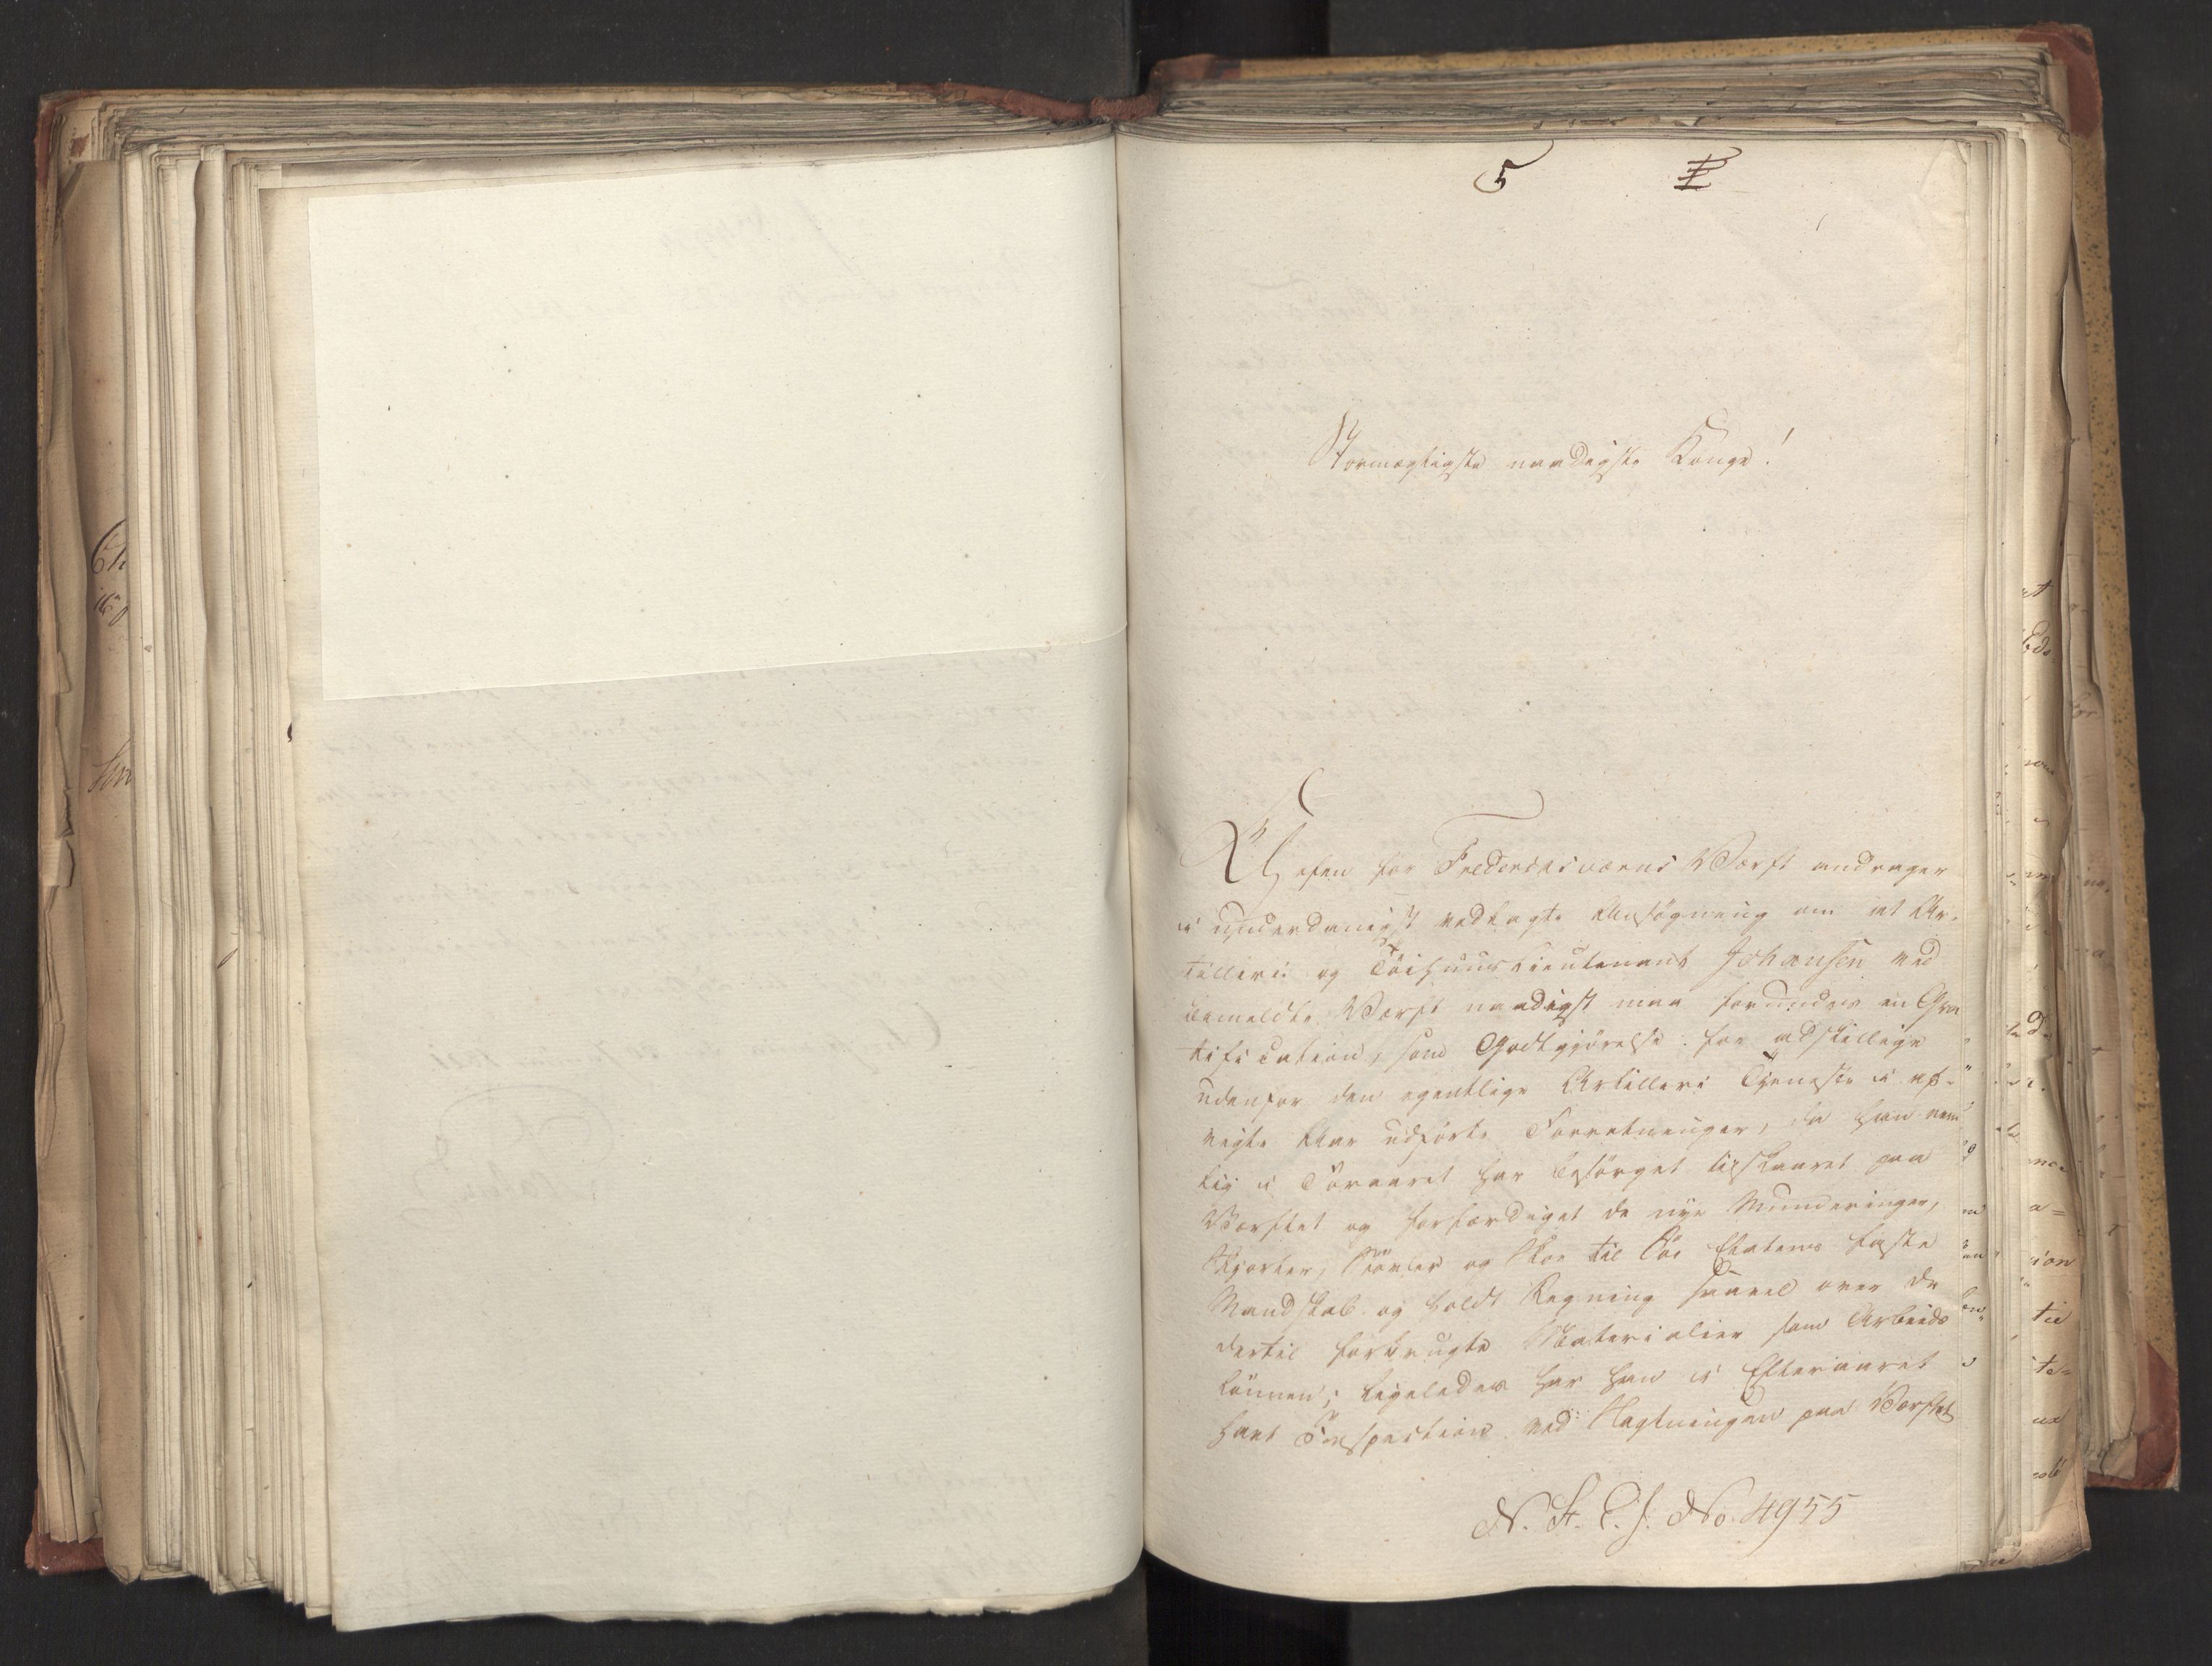 5
Stormægtigste naadigste Konge!
Chefen for Fredericsværns Værft andrager
i underdanigst vedlagte Ansøgning om at Ar-
tilleri og Töihuuslieutenant Johansen ved
bemeldte Værft naadigst maa forundes en Gra
tification, som Godtgjörelse for adskillige
udenfor den egentlige Artilleri Tjeneste i af-
vigte Aar udførte Forretninger, da han nem
lig i Foraaret har besörget tilskaaret paa
Værftet og forfærdiget de nye Munderinger,
Skjorter, Stövler og Skoe til Söe Etatens faste
Mandskab og holdt Regning saavel over de
dertil forbrugte Materialier som Arbeids
lönnen; ligeledes har han i Efteraaret
havt Inspection ved Slagtningen paa Værftet
N. St. C. J. No. 4955